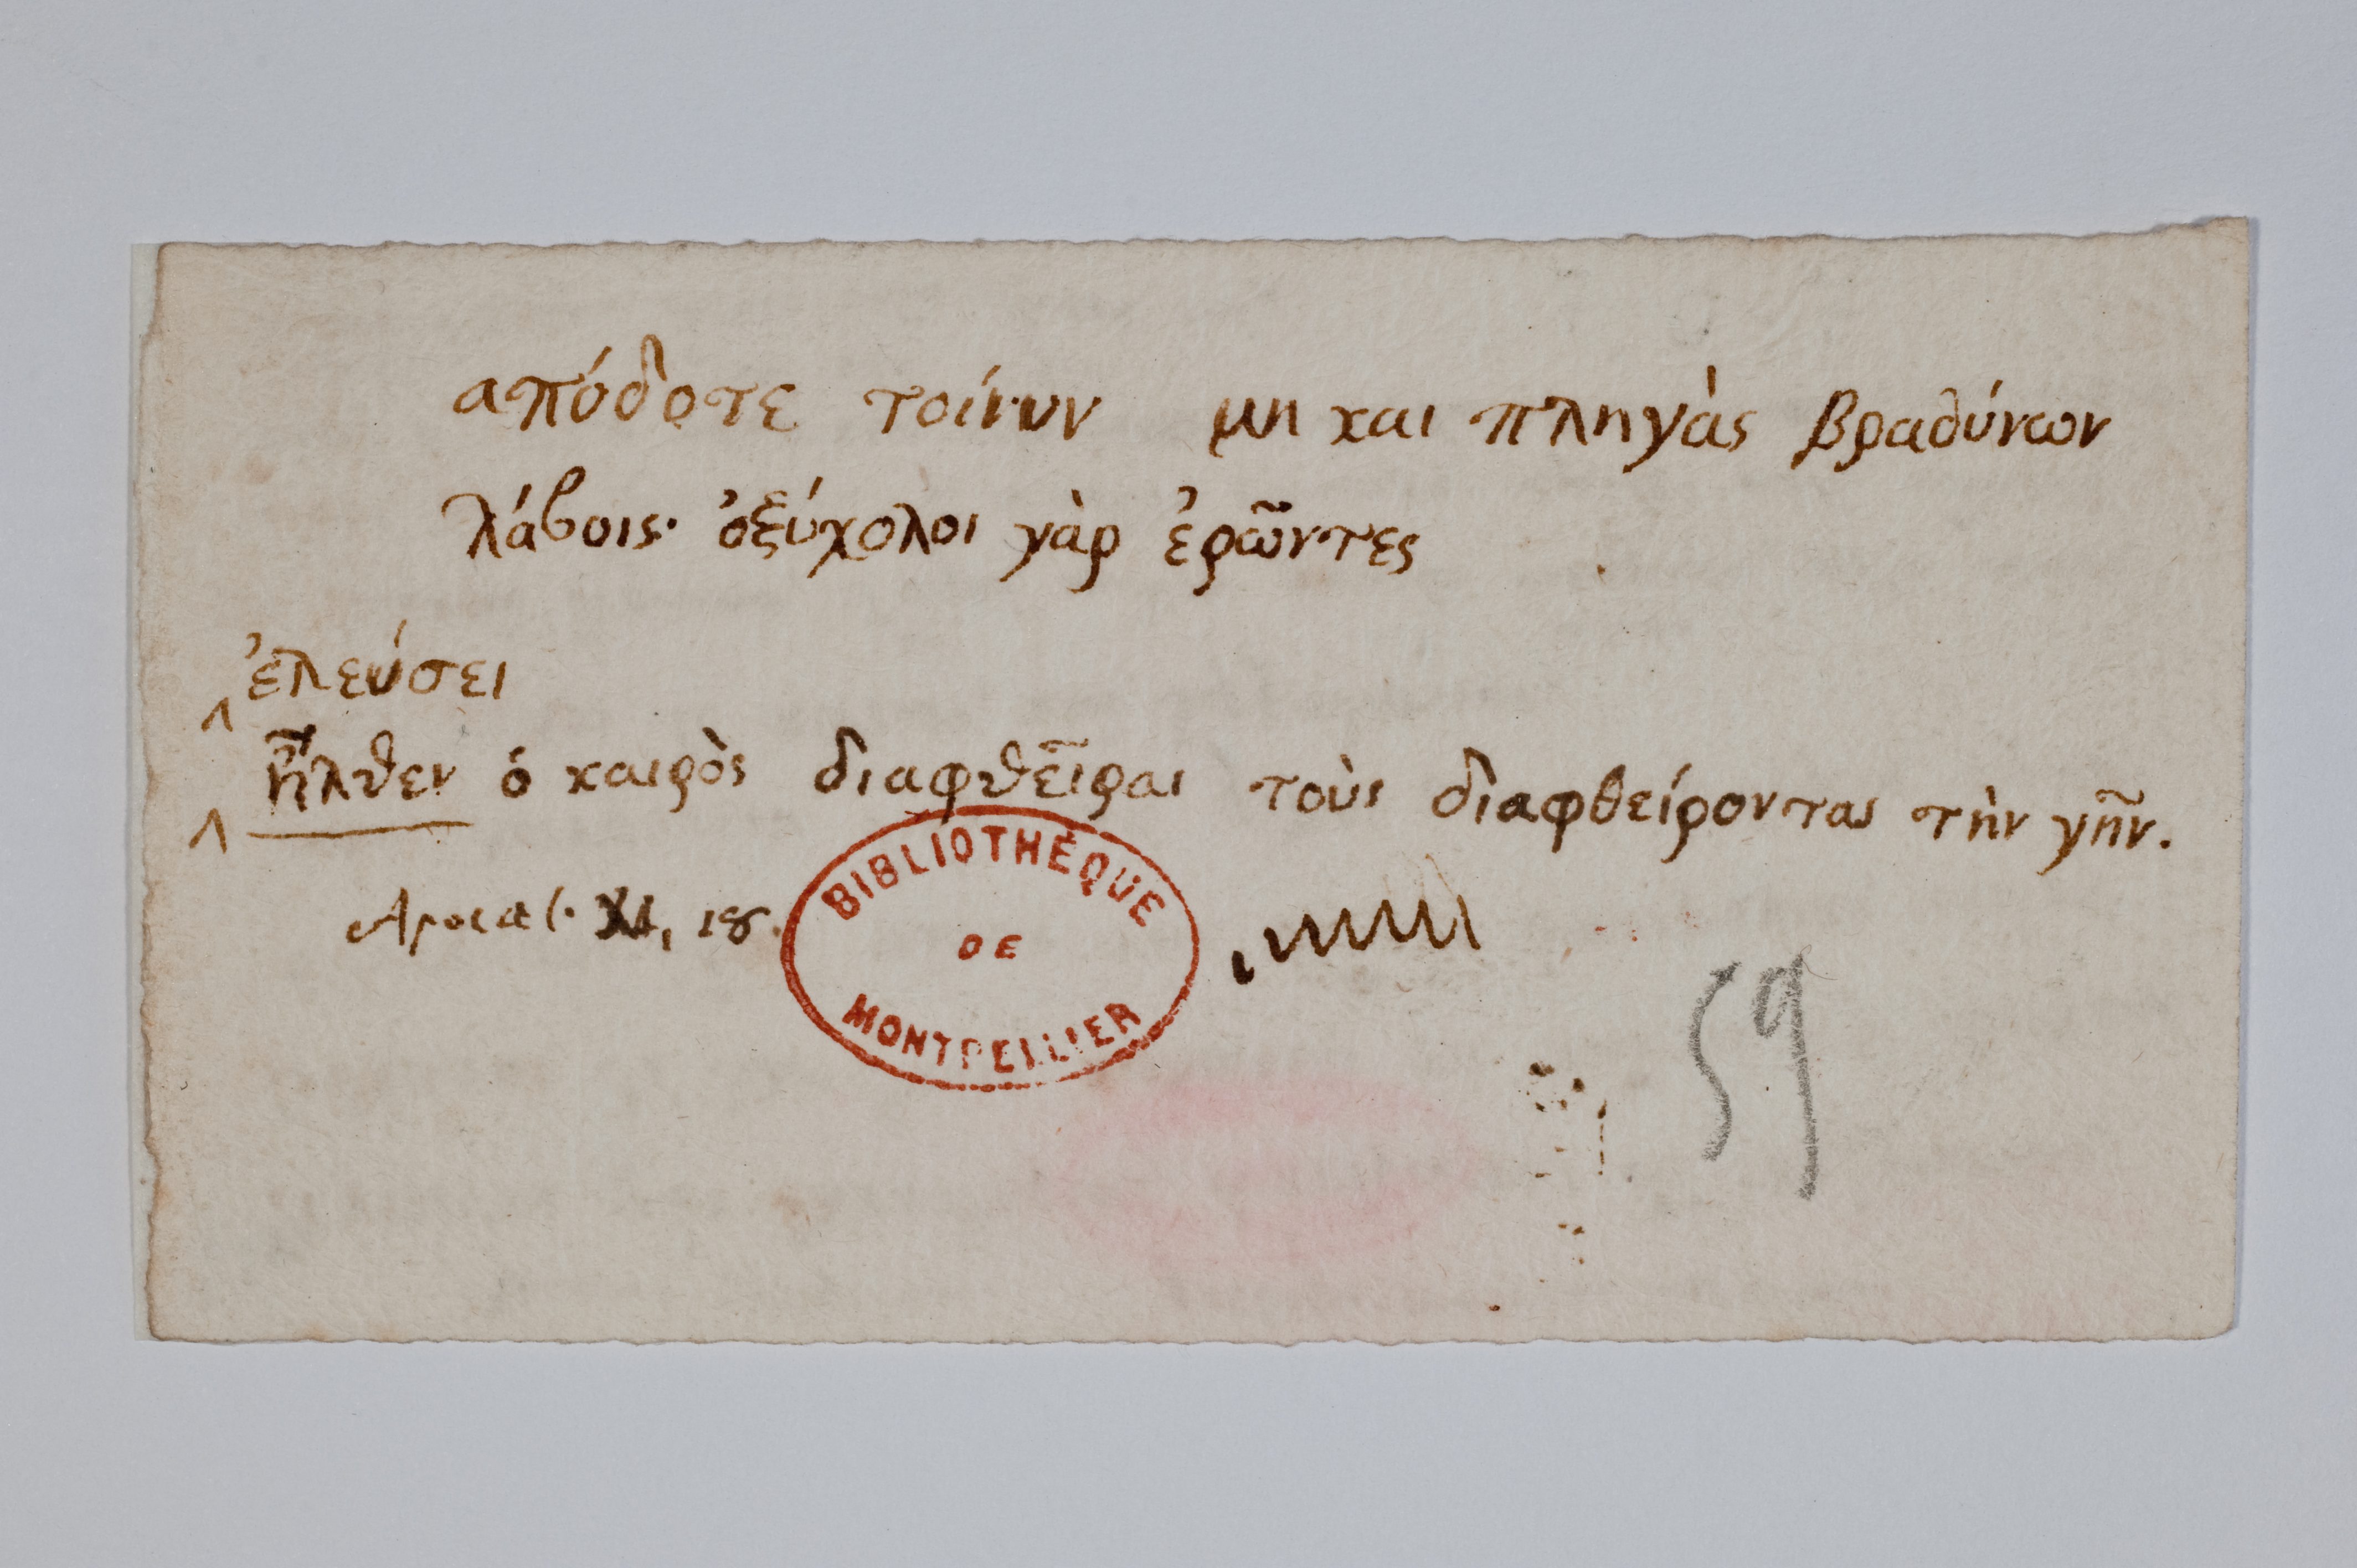 απόδοτε τοίνυν μη και πληγὰς βραδύνων
λάβοις· ὀξύχολοι γὰρ ἐρῶντες
ἐλεύσει
ἦλθεν ὁ καιρὸς διαφθεῖραι τοὺς διαφθείροντας τὴν γῆν.
Apocal. XI, 18.
BIBLIOTHÈQUE
DE
MONTPELLIER
59